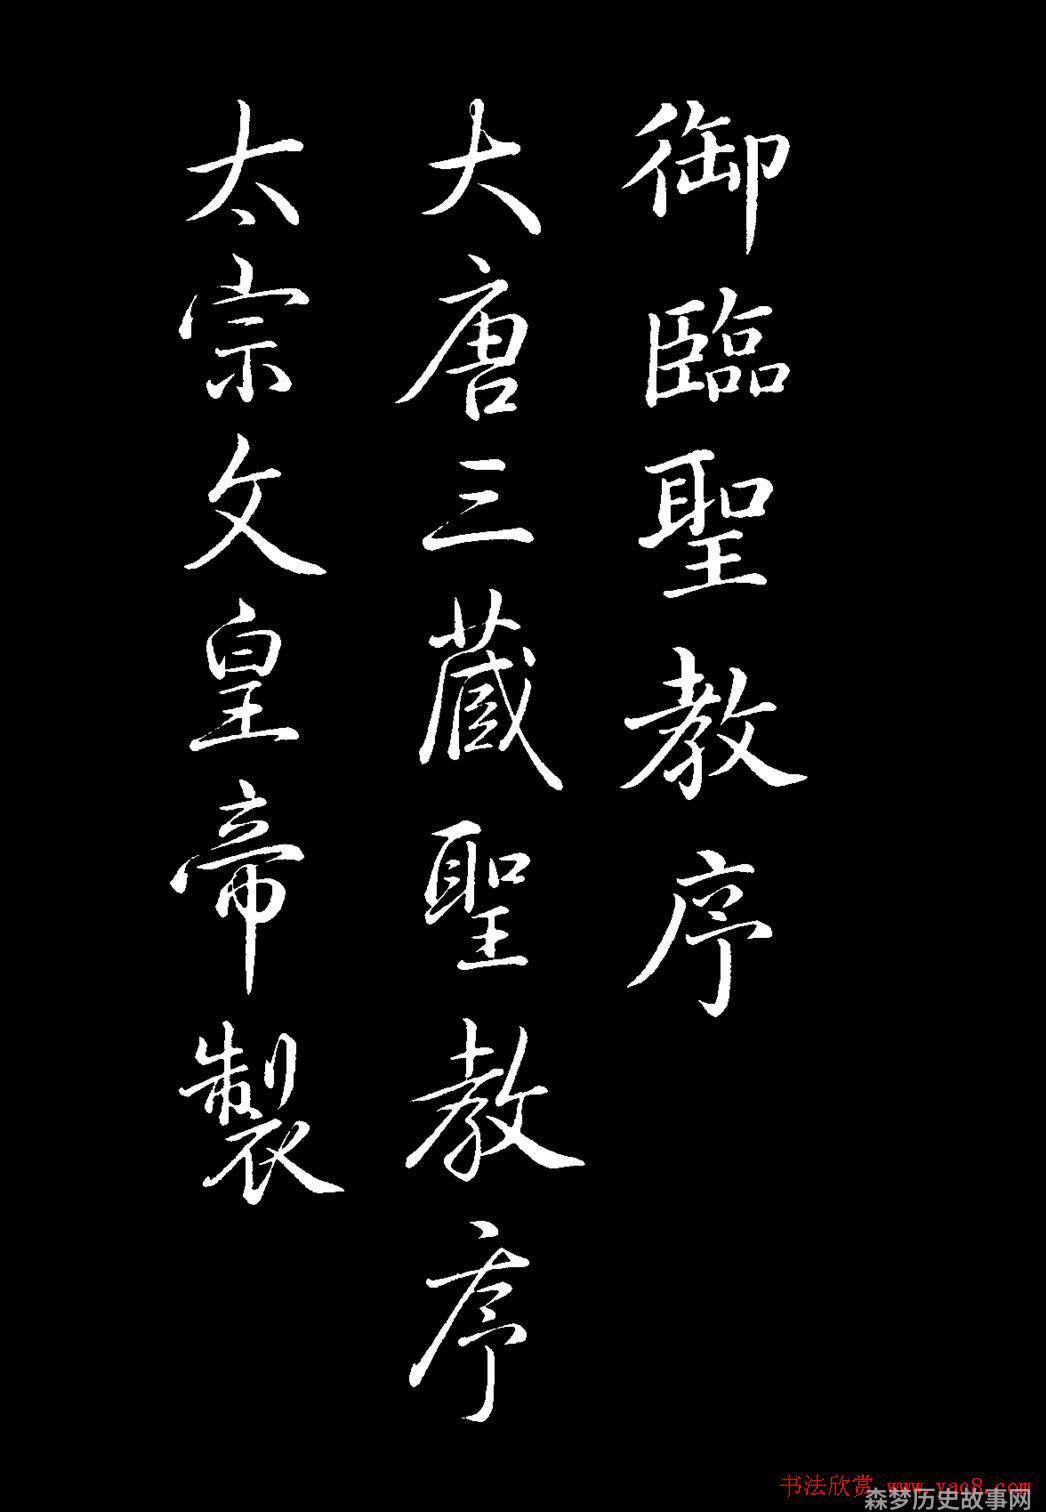 御臨聖教序
大唐三藏聖教序
太宗文皇帝製
书法欣赏 www.yac8.com
森梦历史故事网